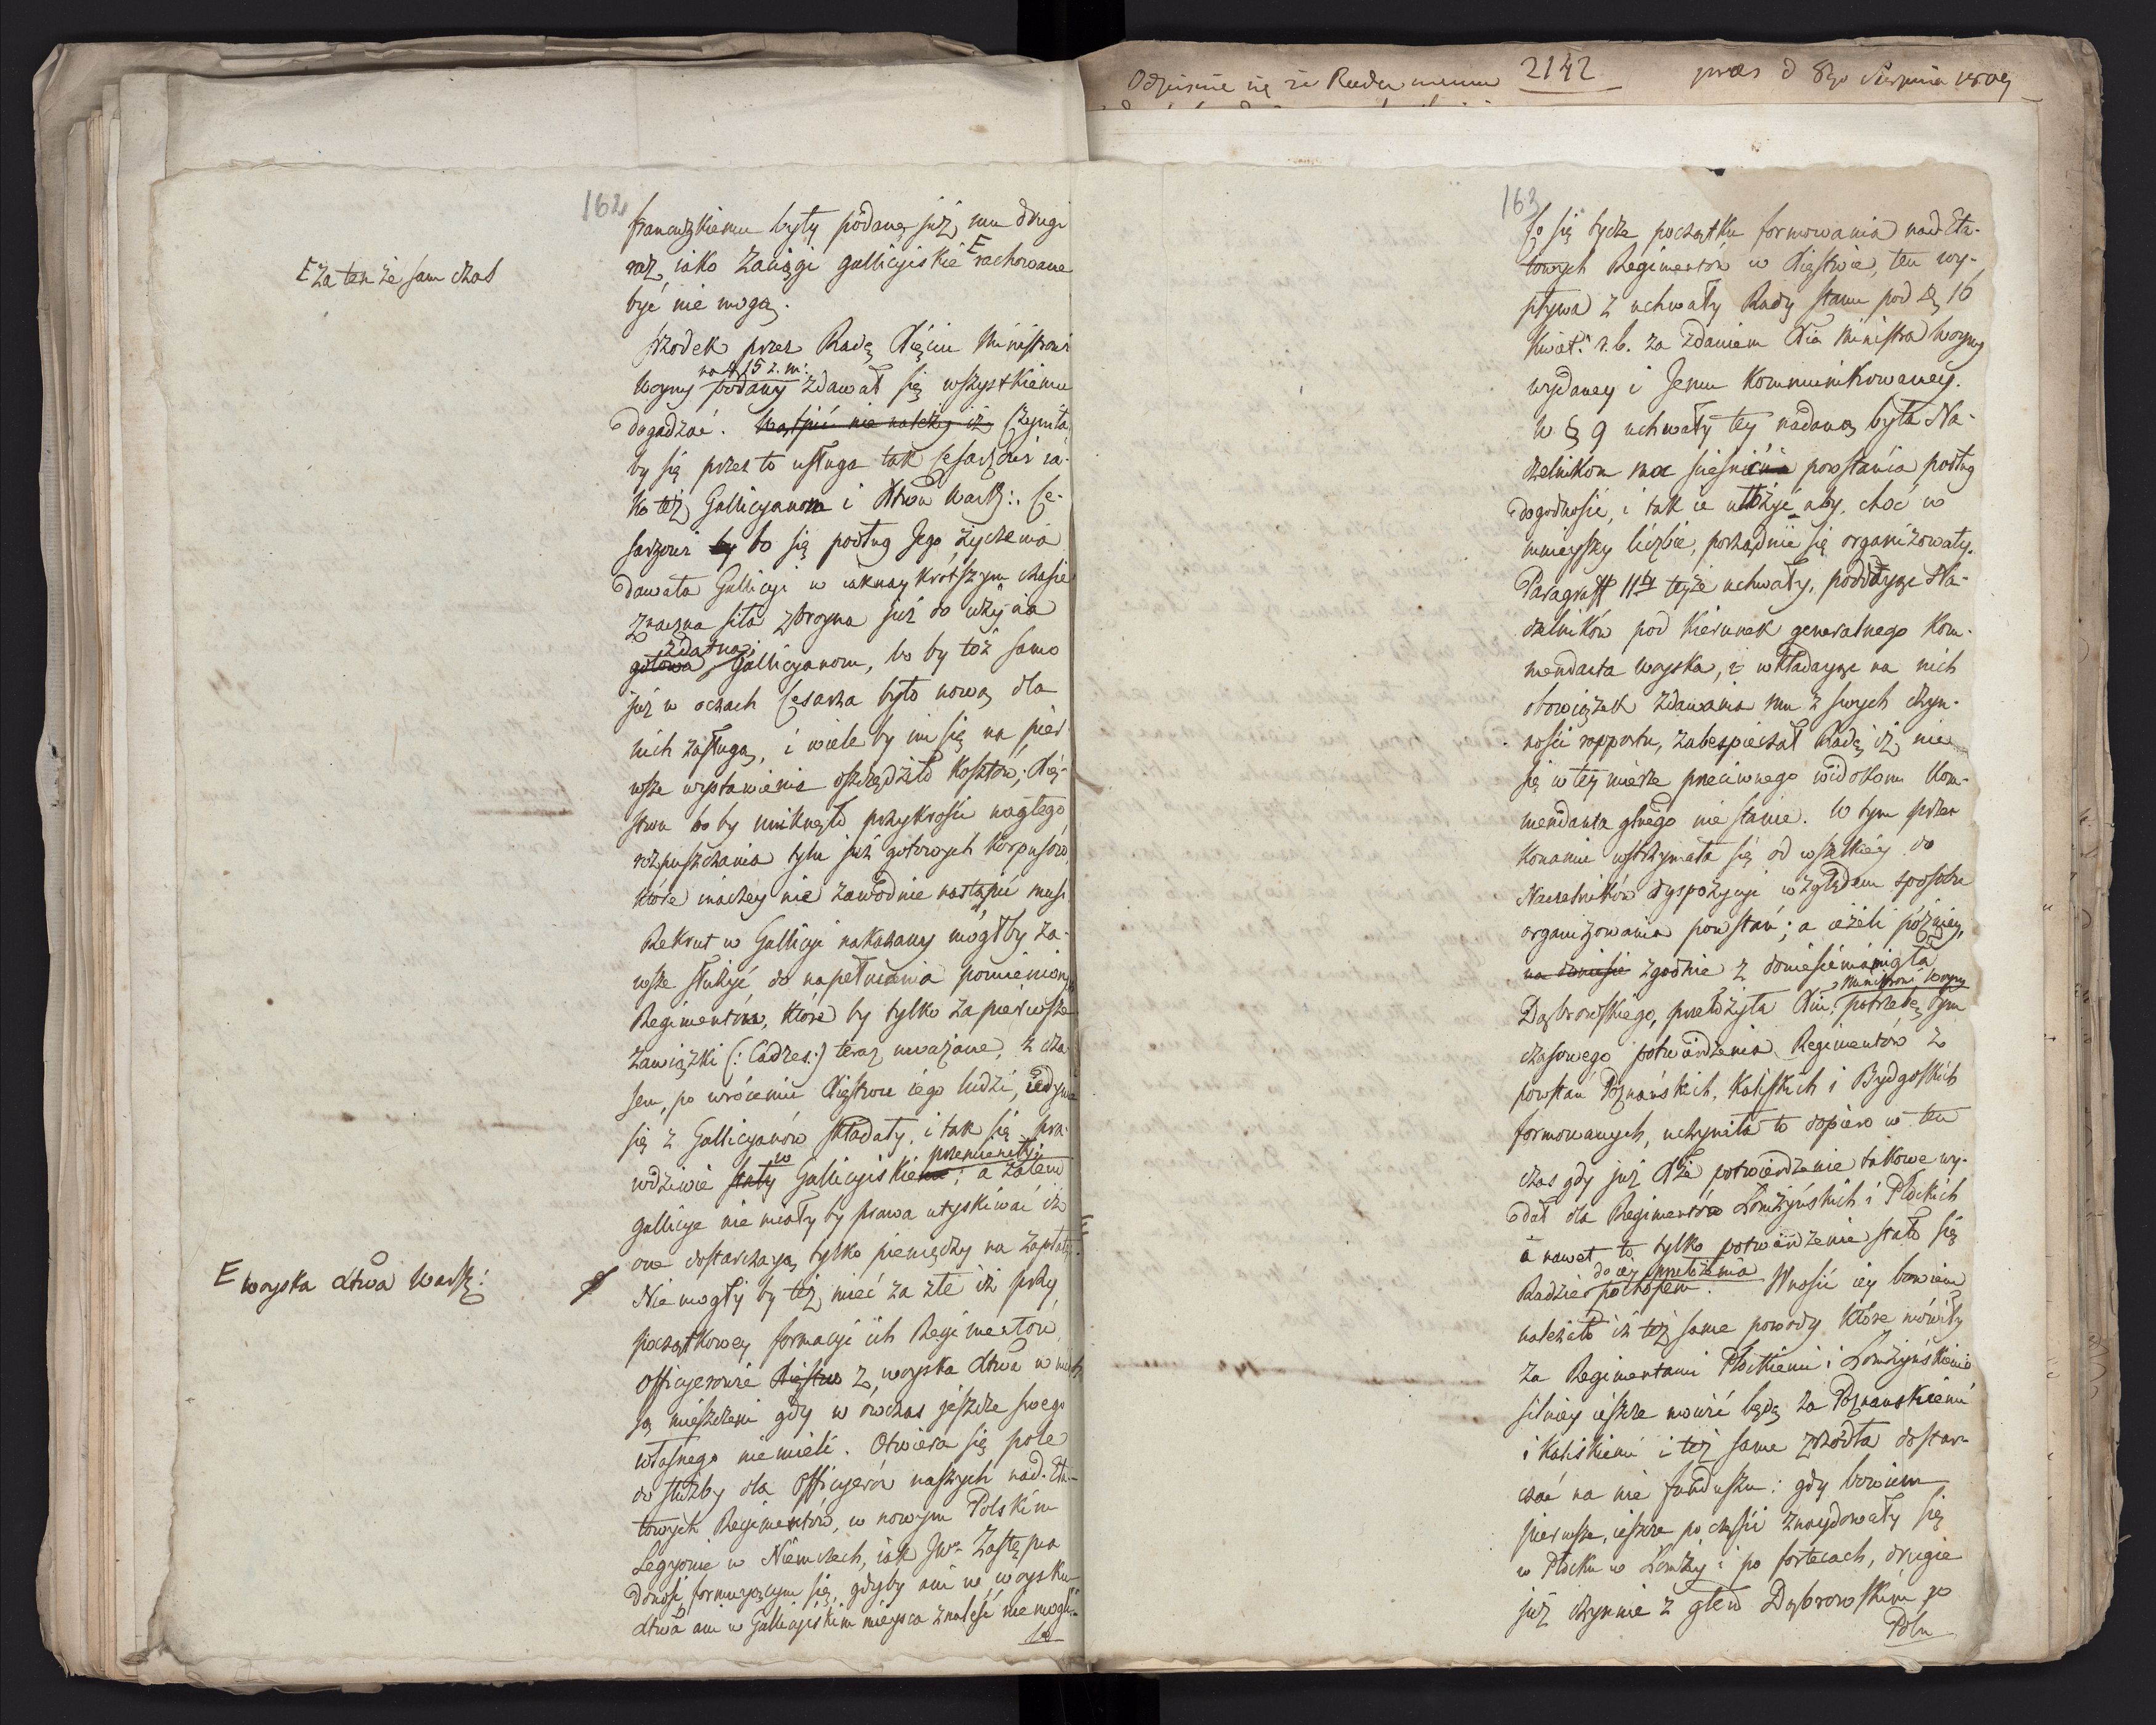 Odpisanie się że Rada
2142
præs d 8go Sierpnia 1809
162
E za ten że sam czas
francuzkiemu były podane już mu drugi
raz, iako Zaciągi gallicyiskie E rachowane
być nie mogą.
Srzodek przez Radę Xięciu Ministrowi
na d. 15 z. m:
Woyny podany zdawał się wszystkiemu
dogadzać. Wątpić nie należy iż Czyniła
by się przez to usługa tak Cesarzowi ia-
ko też Gallicyanom i Xtwu Warsz:. Ce-
sarzowi by bo się podług Jego życzenia
dawała Gallicyi w iaknaykrótszym czasie
znaczna siła zbroyna już do użycia
zdatna;
gotowa, Gallicyanom, bo by toż samo
już w oczach Cesarza było nową dla
nich zasługą, i wiele by im się na pier-
wsze wystawienie oszczędziło kosztów; Xię-
stwu bo by uniknęło przykrości nagłego
rozpuszczania tylu już gotowych korpusów,
które inaczey nie zawodnie nastąpić musi
Rekrut w Gallicyi nakazany mógłby za-
wsze służyć do napełniania pomienion
Regimentów, które by tylko za pierwsze
zawiązki (: Cadres :) teraz uważane, z cza
sem, po wróceniu Xięstwu iego ludzi, iedynie
się z Gallicyanów składały, i tak się pra-
w przemieniły
wdziwie stały Gallicyiskie; a zatem
Gallicye nie miały by prawa utyskiwać iż
one dostarczaią tylko pieniędzy na zapłatę
E woyska Xtwa Warsz:
Nie mogły by też mieć za złe iż przy
początkowey formacyi ich Regimentów
Officyerowie Xięstwa z woyska Xtwa w nich
są mieszczeni gdy w owczas jeszcze swego
własnego nie mieli. Otwiera się pole
do służby dla Officyerów naszych nad-Eta-
towych Regimentów, w nowym Polskim
Legyonie w Niemczech, iak Jwz Zastępca
donosi, formuiącym się, gdyby ani w woysku
Xtwa ani w Gallicyiskim mieysca znaleść nie mogli.
Co
163
Co się tycze początku formowania nad-Eta-
towych Regimentów w Xięstwie, ten wy-
pływa z uchwały Rady Stanu pod d. 16
Kwiet: r. b. za zdaniem Xia Ministra Woyny
wydaney i Jemu kommunikowaney.
W § 9 uchwały tey nadana była Na-
czelnikom moc powstania podług
dogodności, i tak ie ułożyć aby, choć w
mnieyszey liczbie, porządnie się organizowały.
Paragraff 11ty teyże uchwały, poddaiąc Na-
czelników pod kierunek generalnego Kom-
mendanta woyska, i wkładaiąc na nich
obowiązek zdawania mu z swych czyn-
ności rapportu, zabespieczał Radę iż nic
się w tey mierze przeciwnego widokom Kom-
mendanta głnego nie stanie. W tym prze-
konaniu wstrzymała się od wszelkiey do
Naczelników dyspozycyi względem sposobu
organizowania powstań; a ieżeli pózniey,
na doniesie zgodnie z doniesieniami gła
Ministrowi Woyny
Dąbrowskiego, przełożyła Xiu potrzebę tym
czasowego potwierdzenia Regimentów z
powstań Poznańskich, Kaliskich i Bydgoskich
formowanych, uczyniła to dopiero w ten
czas gdy już Xże potwierdzenie takowe wy-
dał dla Regimentów Łomżyńskich i Płockich
a nawet to tylko potwierdzenie stało się
do iey przełożenia
Radzie pochopem. Wnosić iey bowiem
należało iż też same powody które mówiły
za Regimentami Płockiemi i Łomżyńskiemi
silniey ieszcze mówić będą za Poznańskiemi
i Kaliskiemi i też same zrzódła dostar-
czać na nie funduszu: gdy bowiem
pierwsze, ieszcze po części znaydowały się
w Płocku w Łomży i po fortecach, drugie
już czynnie z głem Dąbrowskim po
Polu